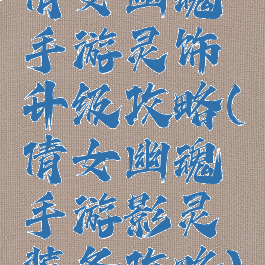 倩女幽魂
手游灵饰
升级攻略(
倩女幽魂
手游影灵
装备攻略)